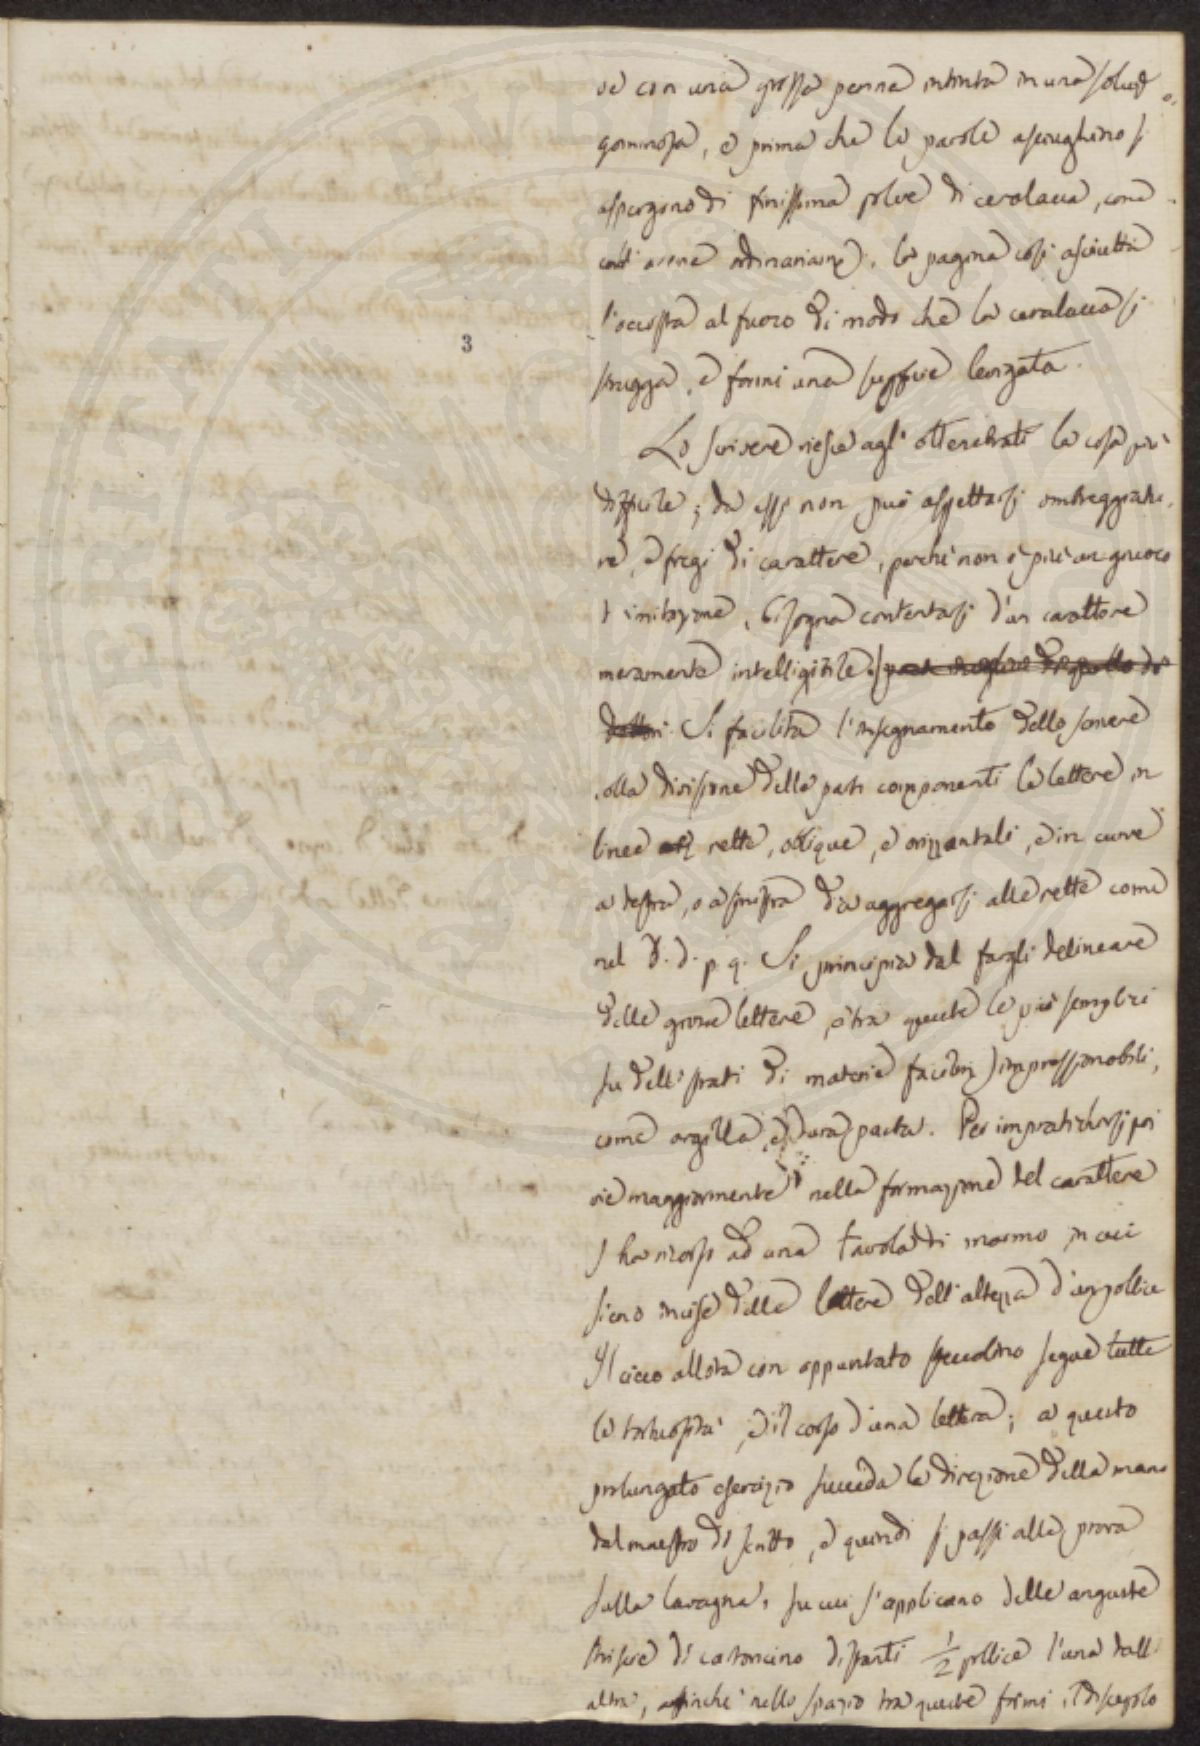 ve con una grossa penna intinta in una soluz.e
gommosa, e prima che le parole asciughino si
aspergono di finissima polve di ceralacca, come
coll' arena ordinariam.e. La pagina così asciutta
s'accosta al fuoco di modo che la ceralacca si
strugga, e formi una superficie levigata.
3
Lo scrivere riesce agl' ottenebrati la cosa più
difficile; da essi non può aspettarsi ombreggiatu-
re, e fregi di carattere, perchè non è più un giuoco
d'imitazione, bisogna contentarsi d'un carattere
meramente intelligibile.
Si facilita l'insegnamento dello scrivere
colla divisione delle parti componenti le lettere in
linee rette, oblique, e orizzontali, e in curve
a destra, o a sinistra da aggregarsi alle rette come
nel b. d. p. q. Si principia dal fargli delineare
delle grosse lettere, e tra queste le più semplici
su delli strati di materie facilm.e impressionabili,
come argilla, e dura pasta. Per impratichirsi poi
vie maggiormente nella formazione del carattere
s' ha ricorso ad una tavola di marmo, in cui
sieno incise delle lettere dell' altezza d'un pollice
Il cieco allora con appuntato stecchino segue tutte
le tortuosità, e il corso d'una lettera; a questo
prolungato esercizio succeda la direzione della mano
dal maestro di scritto, e quindi si passi alla prova
sulla lavagna, su cui s'applicano delle anguste
striscie di cartoncino distanti 1/2 pollice l'una dall'
altra, affinchè nello spazio tra queste formi il discepolo